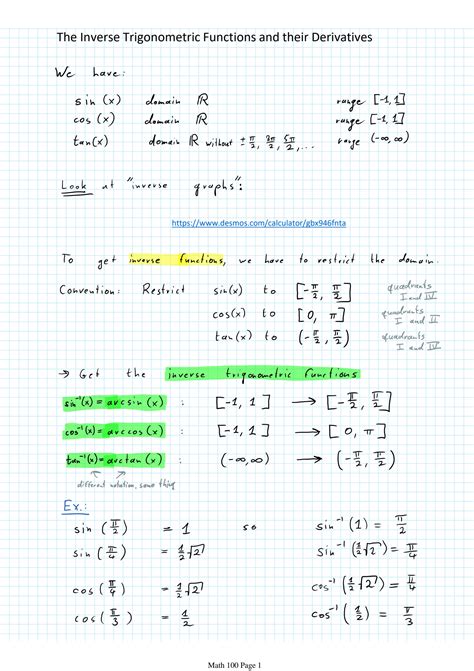 The Inverse Trigonometric Functions and their Derivatives
We have:
sin (x) domain ℝ range [-1,1]
cos (x) domain ℝ range [-1,1]
tan(x) domain ℝ without ± π/2, 3π/2, 5π/2, ... range (-∞,∞)
Look at "inverse graphs":
https://www.desmos.com/calculator/gbx946fnta
To get inverse functions, we have to restrict the domain.
Convention: Restrict sin(x) to [-π/2, π/2] quadrants I and IV
cos(x) to [0, π] quadrants I and II
tan(x) to (-π/2, π/2) quadrants I and IV
→ Get the inverse trigonometric functions
sin⁻¹(x) = arcsin (x) : [-1, 1] → [-π/2, π/2]
cos⁻¹(x) = arccos (x) : [-1, 1] → [0, π]
tan⁻¹(x) = arctan (x) : (-∞,∞) → (-π/2, π/2)
different notation, same thing
Ex.:
sin (π/2) = 1 so sin⁻¹(1) = π/2
sin (π/4) = 1/2 √2 sin⁻¹(1/2 √2) = π/4
cos (π/4) = 1/2 √2 cos⁻¹(1/2 √2) = π/4
cos (π/3) = 1/2 cos⁻¹(1/2) = π/3
Math 100 Page 1